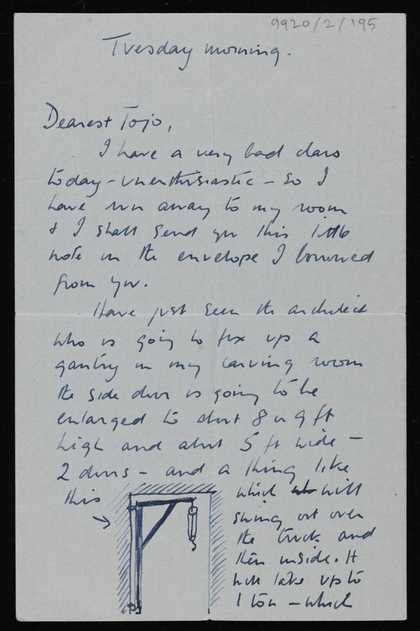 9920/2/195
Tuesday morning.
Dearest Tojo,
I have a very bad class
today - unenthusiastic - so I
have run away to my room
& I shall send you this little
note in the envelope I borrowed
from you.
Have just seen the architect
who is going to fix up a
gantry in my carving room
the side door is going to be
enlarged to about 8 or 9 ft
high and about 5 ft wide -
2 doors - and a thing like
this
which will
swing out over
the truck and
then inside. It
will take up to
1 ton - which